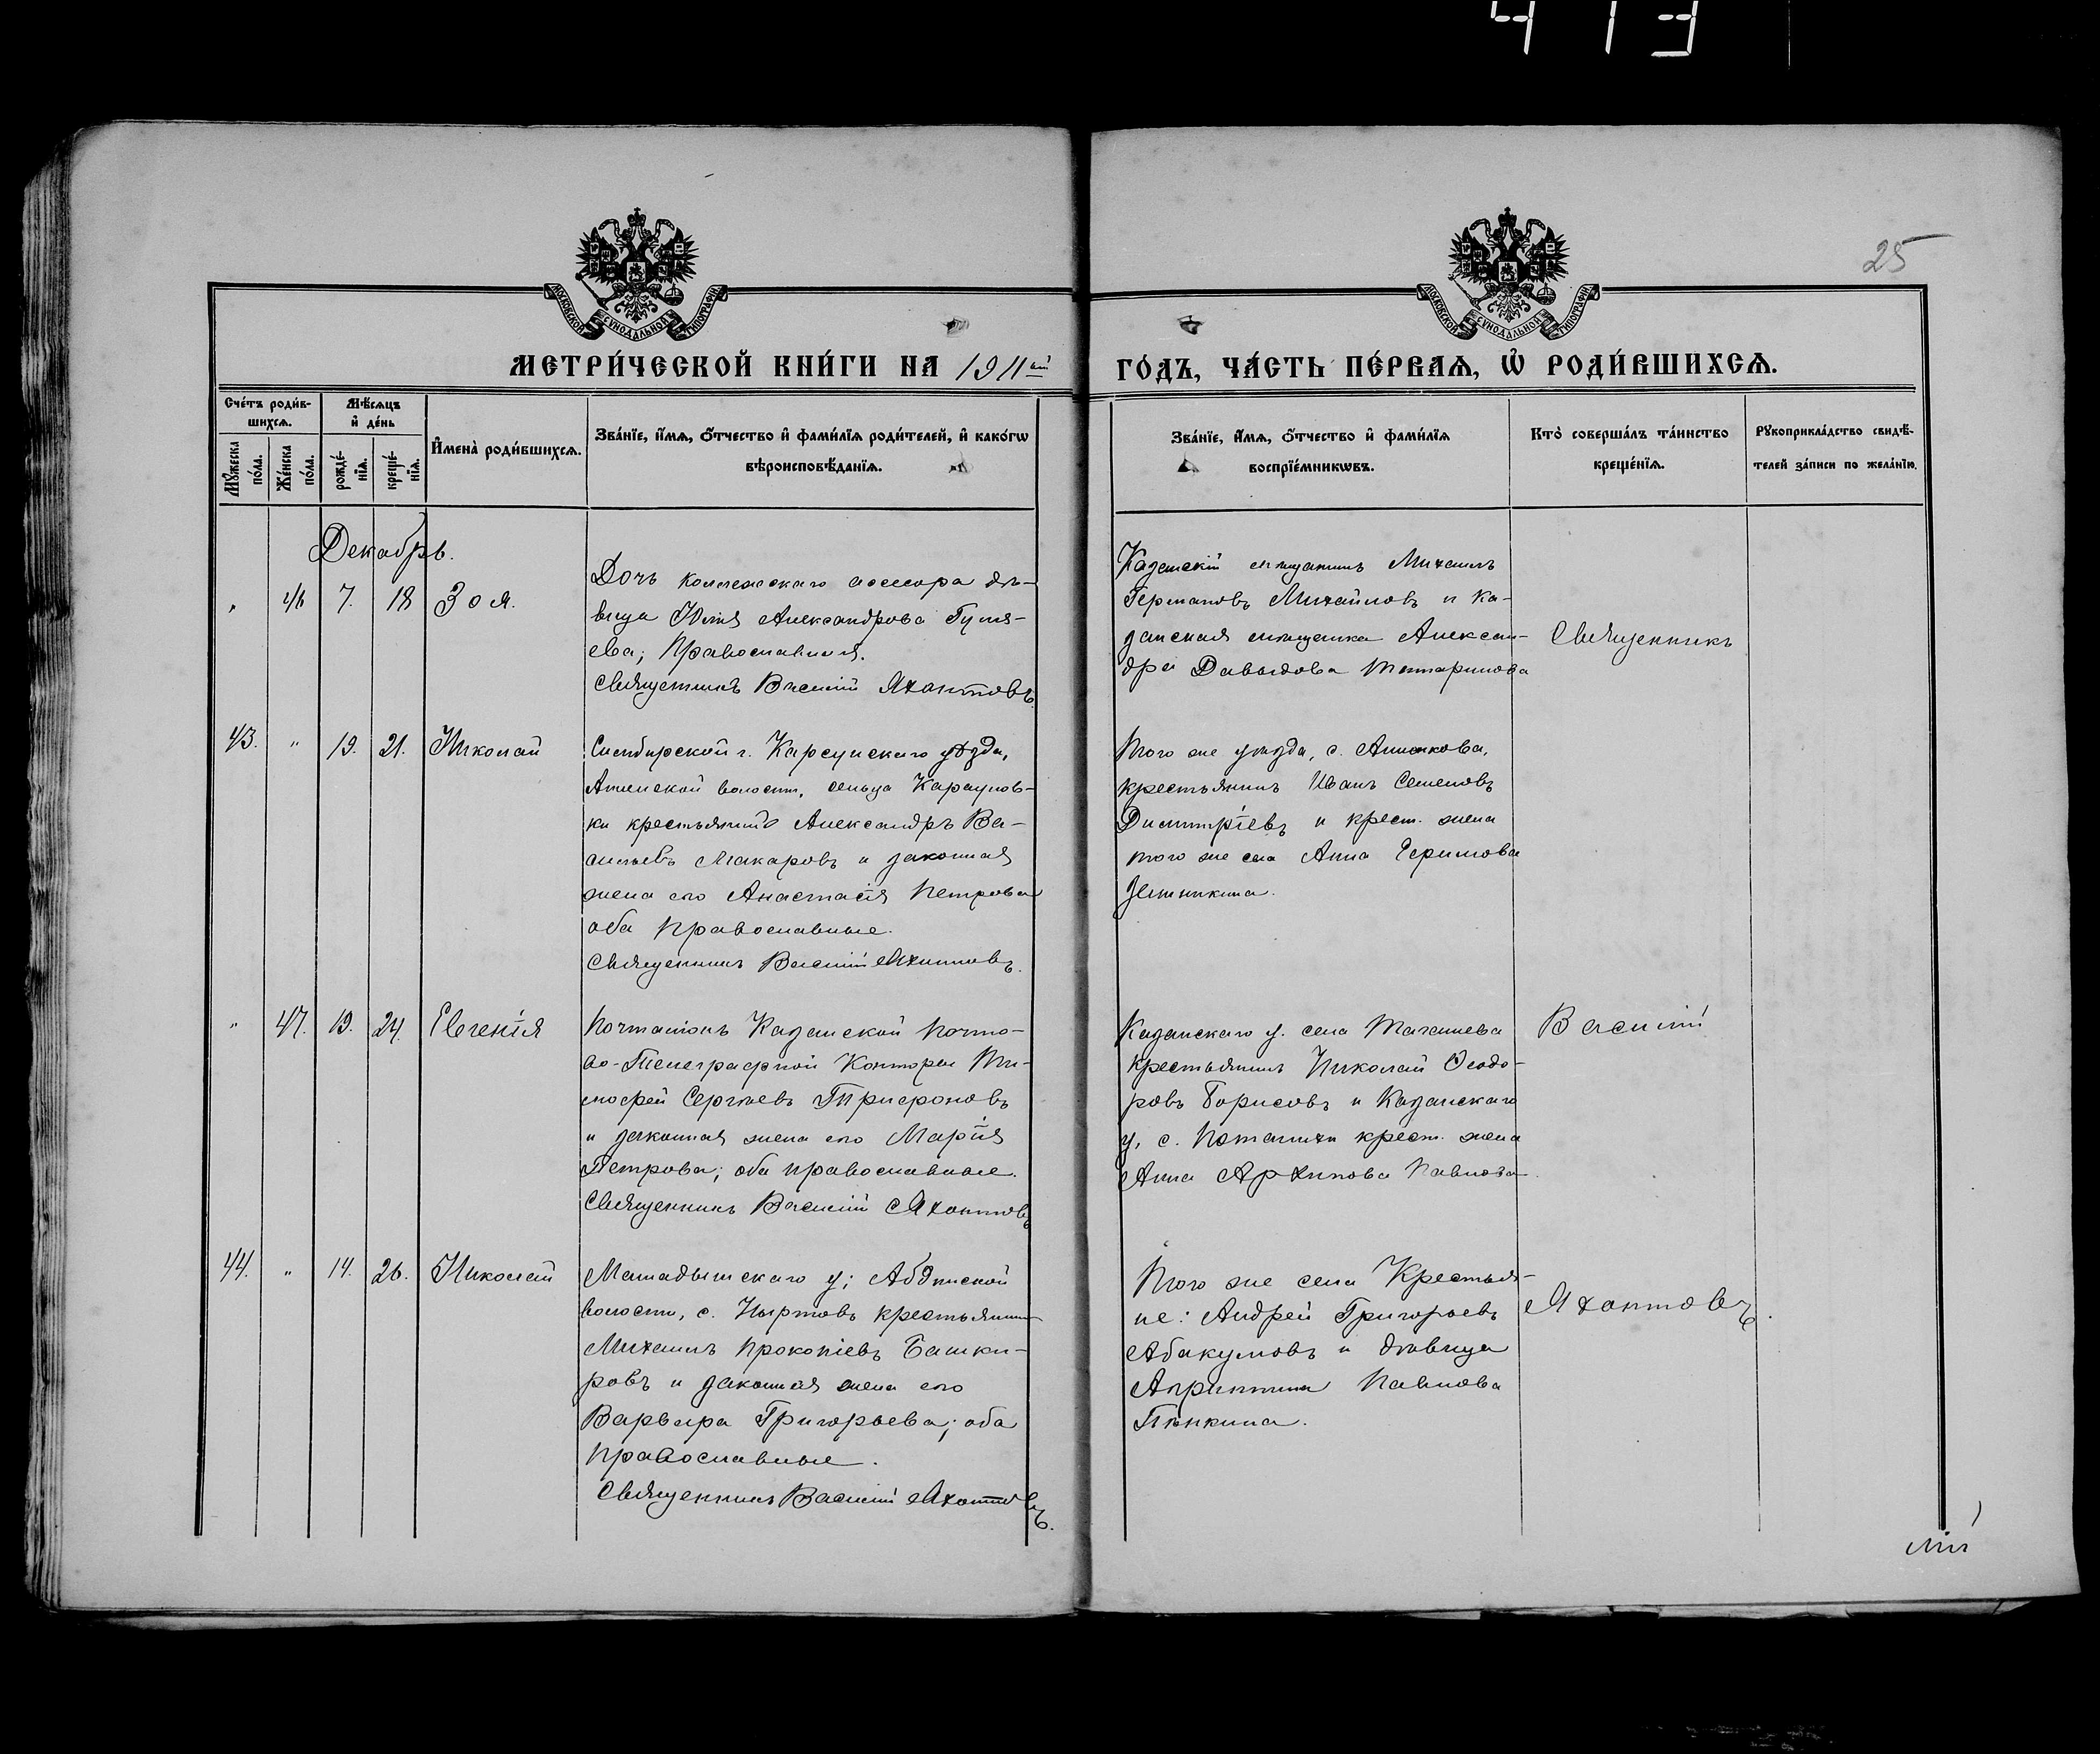 413
25
МОСКОВСКОЙ СУНОДАЛЬНОЙ ТИПОГРАФІИ
МОСКОВСКОЙ СУНОДАЛЬНОЙ ТИПОГРАФІИ
МЕТРИ́ЧЕСКОЙ КНИ́ГИ НА 1911ый ГО́ДЪ, ЧА́СТЬ ПЕ́РВАѦ, Ѡ҆ РОДИ́ВШИХСѦ.
Сче́тъ роди́в-
шихсѧ.
Мꙋ́жеска по́ла.
Же́нска по́ла.
Мѣ́сѧцъ
и҆ де́нь
рожде́-
нїѧ.
креще́-
нїѧ.
И҆мена̀ роди́вшихсѧ.
Зва́нїе, и҆́мѧ, ѻ҆́тчество и҆ фами́лїѧ роди́телей, и҆ како́гѡ
вѣроисповѣ́данїѧ.
Зва́нїе, и҆́мѧ, ѻ҆́тчество и҆ фами́лїѧ
воспрїе́мникѡвъ.
Кто̀ соверша́лъ та́инство
креще́нїѧ.
Рꙋкоприкла́дство свидѣ́-
телей за́писи по жела́нїю.
Декабрь.
" 46 7. 18 Зоя.
Дочь коллежскаго асессора дѣ-
вица Юлія Александрова Гуля-
ева; Православная.
Священникъ Василій Яхонтовъ
Казанскій мѣщанинъ Михаилъ
Германовъ Михайловъ и Ка-
занская мѣщанка Алексан-
дра Давыдова Татаринова
Священникъ
43. " 19. 21. Николай
Симбирской г. Карсунскаго уѣзда,
волости, сельца Караулов-
ки крестьянинъ Александръ Ва-
сильевъ Макаровъ и законная
жена его Анастасія Петрова
оба православные.
Священникъ Василій Яхонтовъ.
Того же уѣзда, с. Анненкова,
крестьянинъ Иванъ Семеновъ
Димитріевъ и крест. жена
того же села Анна Ефимова
" 47. 19. 24. Евгенія
Почталіонъ Казанской Почто-
во-Телеграфной Конторы Ти-
мофей Сергѣевъ Трифоновъ
и законная жена его Марія
Петрова; оба православные.
Священникъ Василій Яхонтовъ
Казанскаго у. села Ташевка
крестьянинъ Николай Ѳеодо-
ровъ Борисовъ и Казанскаго
у. с. крест. жена
Анна Архипова Павлова.
Василій
44. " 14. 26. Николай
Мамадышскаго у; Абдинской
волости, с. Ныртовъ крестьянинъ
Михаилъ Прокопіевъ Башки-
ровъ и законная жена его
Варвара Григорьева; оба
православные.
Священникъ Василій Яхонтовъ.
Того же села Крестья-
не: Андрей Григорьевъ
Абакумовъ и дѣвица
Агриппина Павлова
Пѣнкина.
Яхонтовъ.